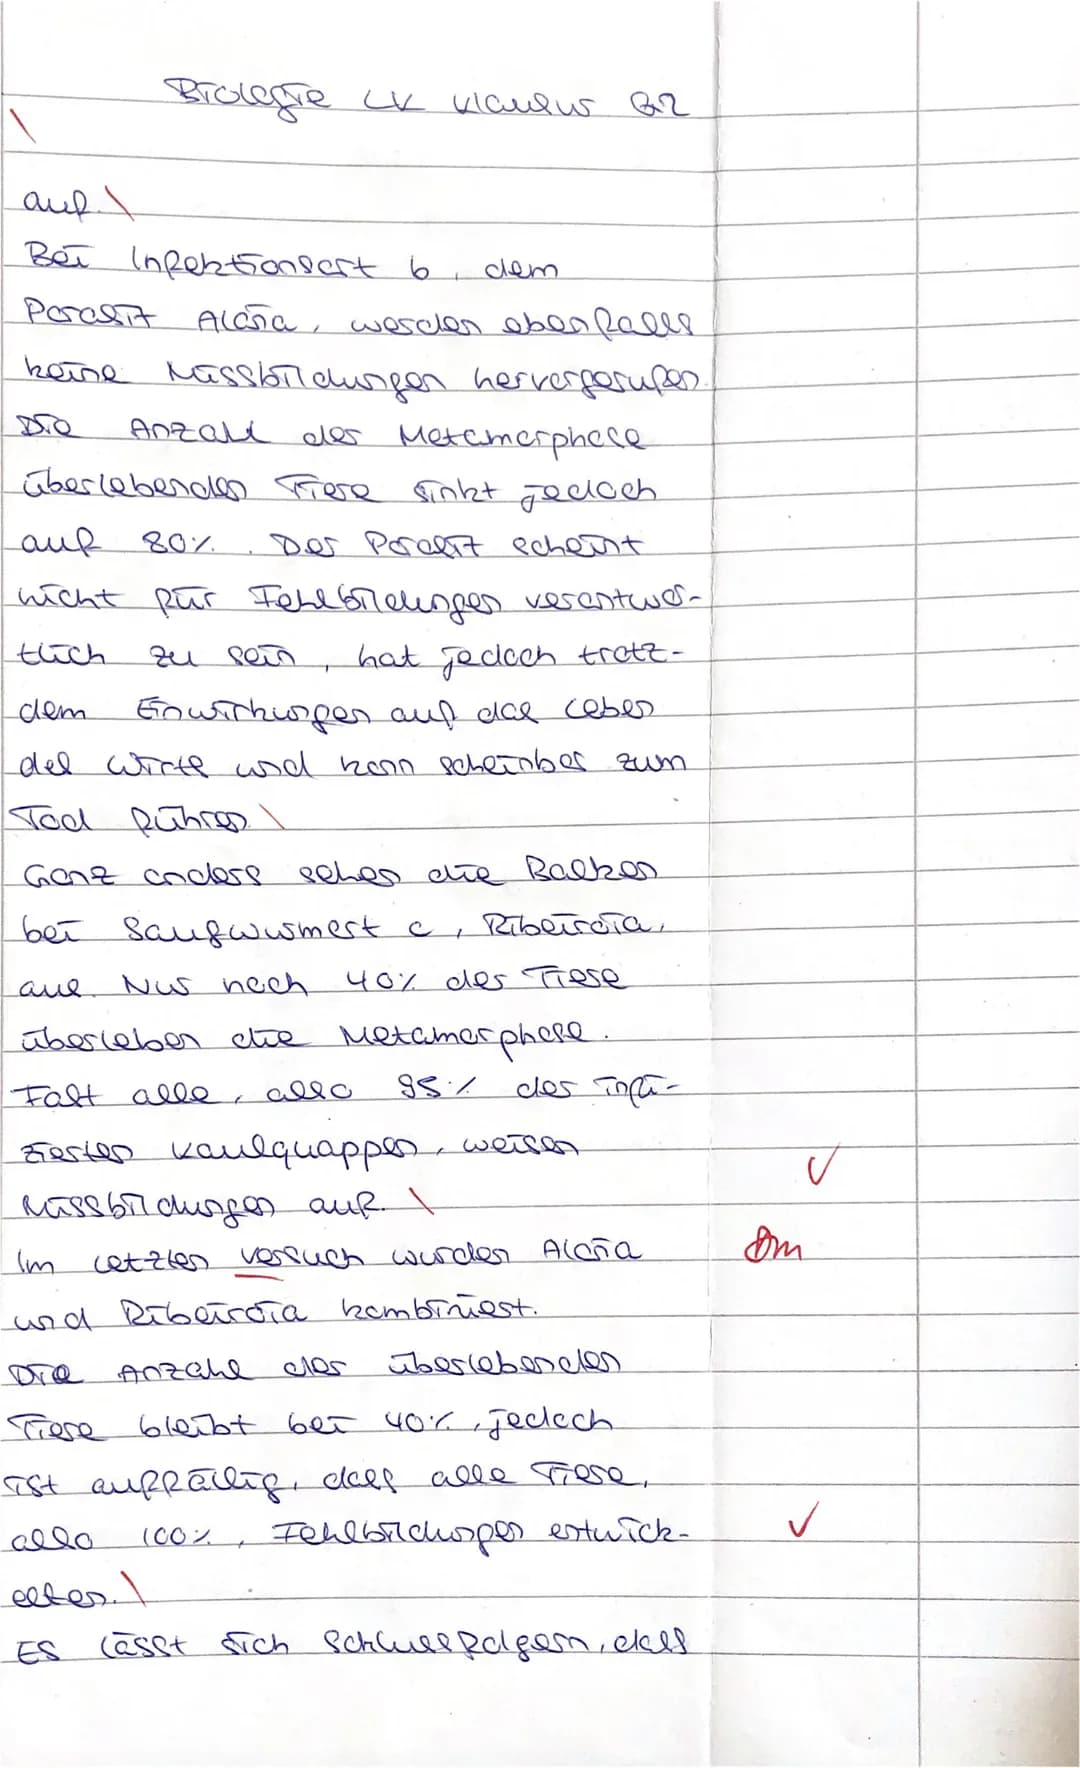 Biologie LK Klausur Q2
auf.
Bei Infektionsart b, dem
Parasit Alaria, werden ebenfalls
keine Missbildungen hervorgerufen.
Die Anzahl der Metamorphose
überlebenden Tiere sinkt jedoch
auf 80%. Der Parasit scheint
nicht für Fehlbildungen verantwor-
tlich zu sein, hat jedoch trotz-
dem Einwirkungen auf das Leben
des Wirts und kann scheinbar zum
Tod führen.
Ganz anders sehen die Balken
bei Saugwurmart c, Ribeiroia,
aus. Nur noch 40% der Tiere
überleben die Metamorphose.
Fast alle, also 95% der infi-
zierten Kaulquappen, weisen
Missbildungen auf.
Im letzten Versuch wurden Alaria
und Ribeiroia kombiniert.
Die Anzahl der überlebenden
Tiere bleibt bei 40%, jedoch
ist auffällig, dass alle Tiere,
also 100%, Fehlbildungen entwick-
elten.
Es lässt sich schlussfolgern, dass